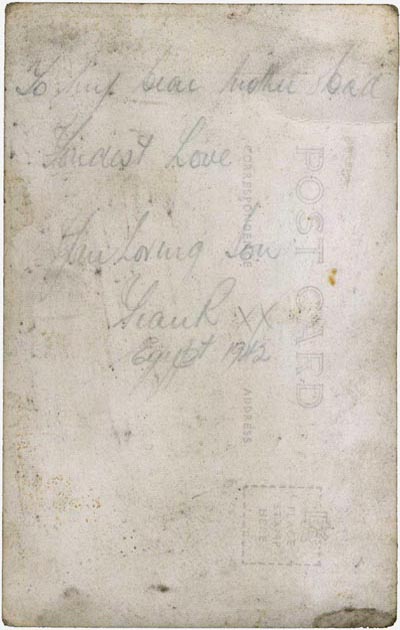 To my dear Mother & Dad
Fondest Love
Your Loving Son
Frank XX
Egypt 1942
POST CARD
CORRESPONDENCE
ADDRESS
PLACE
STAMP
HERE